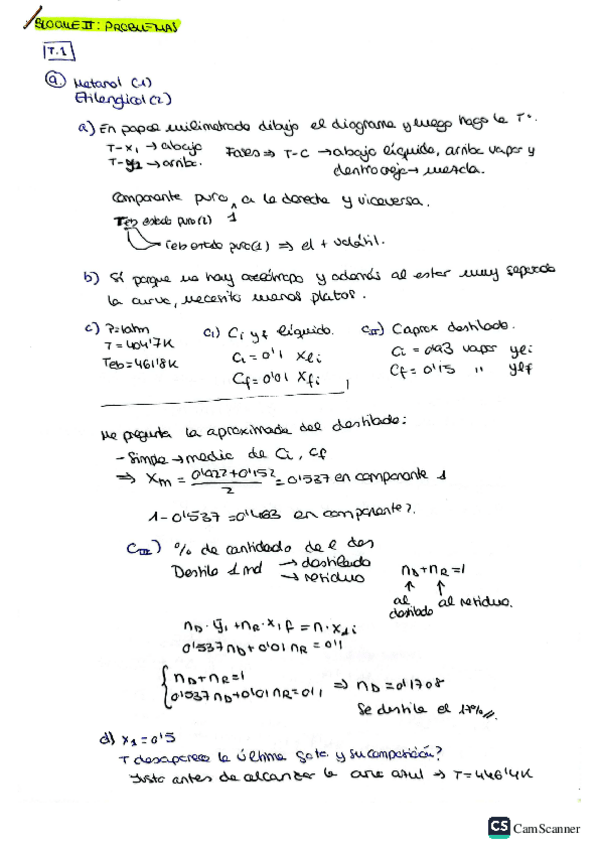 BLOQUE II: PROBLEMAS
T.1
a) Metanol (1)
Etilenglicol (2)
a) En papel milimetrado dibujo el diagrama y luego hago la Tª.
T-x₁ → abajo
T-y₂ → arriba.
Fases ⇒ T-C → abajo líquido, arriba vapor y
dentro → mezcla.
Componente puro, 1 a la derecha y viceversa.
Teb estado puro (2)
Teb estado puro (1) ⇒ el + volátil.
b) Sí porque no hay azeótropo y además al estar muy separada
la curva, necesito menos platos.
c) P=1atm
T=404'7K
Teb=461'8K
Ci) Ci y f líquido.
Ci = 0'1 xli
Cf = 0'01 xfi
CII) C aprox destilado.
Ci = 0'93 vapor yli
Cf = 0'15 " ylf
Me pregunta la aproximada del destilado:
- Simple → media de Ci, Cf
⇒ Xm = (0'922+0'152)/2 = 0'537 en componente 1
1-0'537 = 0'463 en componente 2.
CIII) % de cantidad de e des
Destilo 1 mol → destilado
→ residuo
nD + nR = 1
al destilado
al residuo.
nD · ȳ₁ + nR · x₁f = n · x₁i
0'537 nD + 0'01 nR = 0'1
nD + nR = 1
0'537 nD + 0'01 nR = 0'1 ⇒ nD = 0'1708
Se destila el 17%//
d) x₁ = 0'5
T desaparece la última gota y su composición?
Justo antes de alcanzar la curva azul → T = 446'4K
CS CamScanner